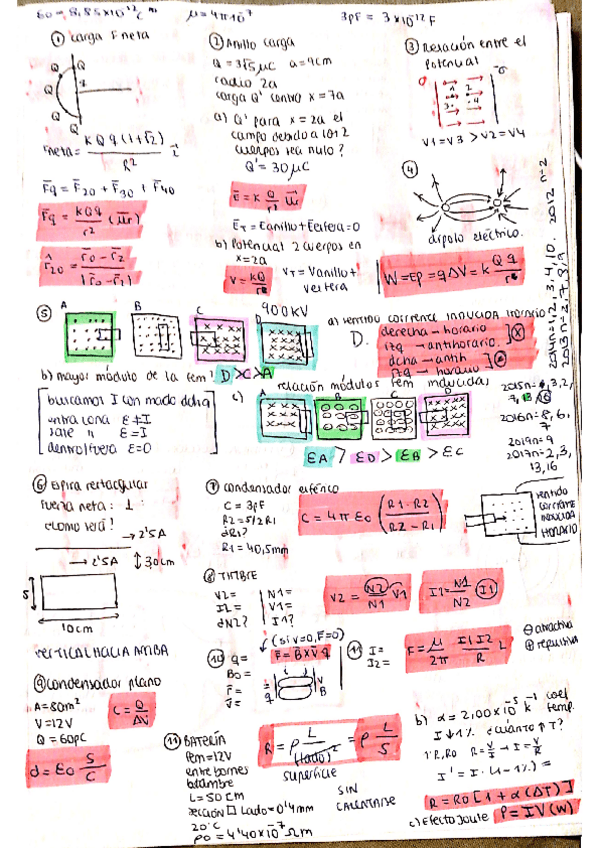 εo = 8,85x10⁻¹² C
μ = 4π10⁻⁷
3pF = 3x10⁻¹² F
① Carga F neta
Q
Q
Q
Q
q
Fneta = KQq(1+√2) / R² i
F̄q = F̄20 + F̄30 + F̄40
F̄q = KQq / r² (ūr)
r̂20 = r̄0 - r̄2 / |r̄0 - r̄2|
② Anillo carga
Q = 35 μC a = 4cm
radio 2a
carga Q' centro x = 7a
a) Q' para x = 2a el
campo debido a los 2
cuerpos sea nulo?
Q' = 30 μC
Ē = K Q / r² ūr
ET = Eanillo + Eesfera = 0
b) Potencial 2 cuerpos en
x = 2a
V = KQ / r
VT = Vanillo +
Vesfera
③ Relación entre el
potencial
1 2
3 4
V1 = V3 > V2 = V4
④
dipolo eléctrico.
W = Ep = qΔV = K Qq / r
2012 n-2
⑤
A
B
C
D
900KV
a) sentido corriente inducida horario
D.
derecha → horario
izq → antihorario.
dcha → antih
izq → horario
b) mayor módulo de la fem! D > C > A
buscamos I con mano dcha
entra cona ε≠I
sale " ε=I
dentro/fuera ε=0
c) relación módulos fem inducidas
A
B
C
D
εA > εD > εB > εC
2016n=8, 6,
7
2019n=9
2017n=2, 3,
13, 16
⑥ Espira rectangular
Fuerza neta: 1
cómo será!
→ 2'5A
→ 2'5A
↕ 3,0cm
5
10cm
VERTICAL HACIA ARRIBA
⑦ condensador esférico
C = 3pF
R2 = 5/2 R1
dR1?
R1 = 40,5mm
C = 4π εo (R1·R2 / R2-R1)
sentido
corriente
inducida
HORARIO
⑧ TIMBRE
V2 =
I2 =
dN2?
N1 =
V1 =
I1?
V2 = N2/N1 V1
I1 = N1/N2 I1
⑨ Condensador plano
A = 80m²
V = 12V
Q = 60pC
C = Q / ΔV
d = εo S / C
⑩ q =
Bo =
F̄ =
v̄ =
(si v=0, F=0)
F̄ = B̄ x V̄ q
V
B
q
⑪ I =
I2 =
F = μ/2π I1 I2/R L
⊖ atractiva
⊕ repulsiva
⑪ BATERÍA
fem = 12V
entre bornes
alambre
L = 50 cm
sección □ Lado = 0'4mm
20°C
ρo = 4'40x10⁻⁷ Ωm
R = ρ L / (lado)² = ρ L / S
superficie
SIN
CALENTARSE
b) α = 2,00x10⁻⁵ K⁻¹ coef
temp.
I ↓ 1% ¿cuánto ↑ T?
R = V/I → I = V/R
I' = I · (1 - 1%) =
R = R0 [1 + α(ΔT)]
c) Efecto Joule P = IV (W)